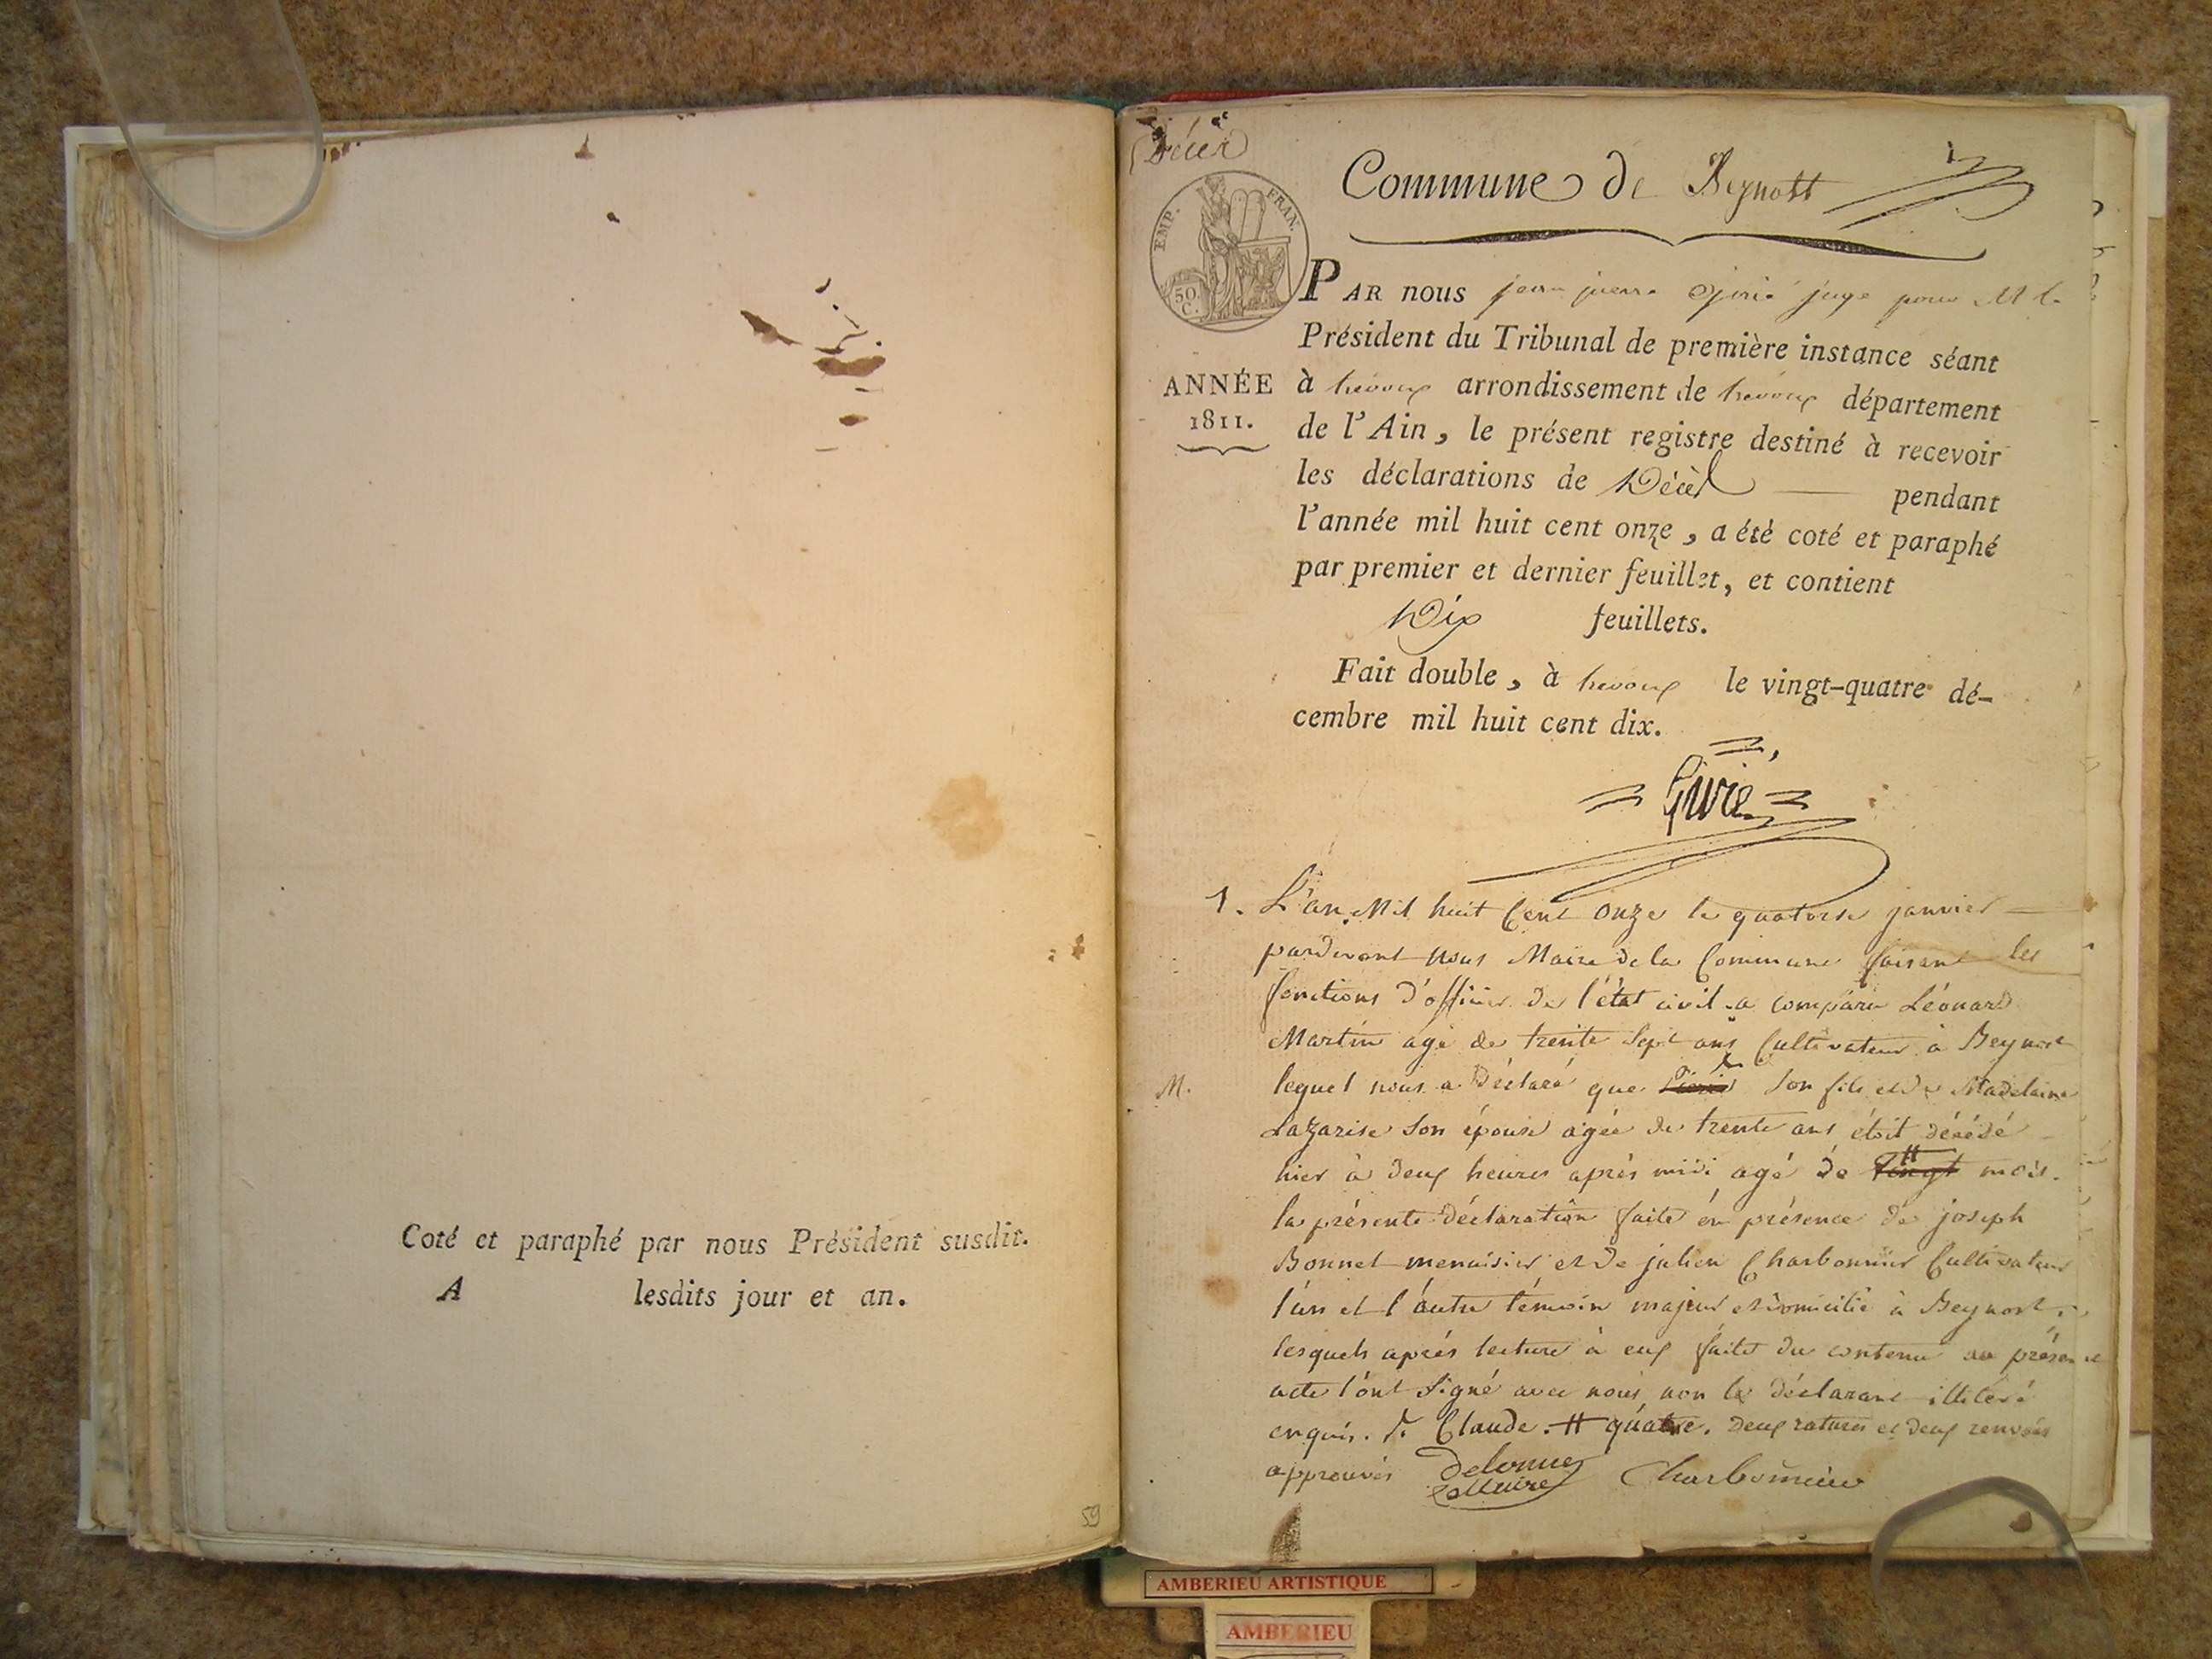 Coté et paraphé par nous Président susdit.
A lesdits jour et an.
59
Décès
EMP. FRAN.
50 C.
ANNÉE
1811.
Commune de Beynost
PAR nous jean pierre Givié juge pour M le
Président du Tribunal de première instance séant
à trevoux arrondissement de trevoux département
de l'Ain, le présent registre destiné à recevoir
les déclarations de Décès pendant
l'année mil huit cent onze, a été coté et paraphé
par premier et dernier feuillet, et contient
Dix feuillets.
Fait double, à trevoux le vingt-quatre dé-
cembre mil huit cent dix.
Givié
1. L'an Mil huit Cent onze le quatorse janvier
pardevant nous Maire de la Commune faisant les
fonctions d'officier de l'état civil a comparu Léonard
Martin agé de trente Sept ans Cultivateur à Beynost
M. lequel nous a Déclaré que son fils et de Madelaine
Lazarise son épouse agée de trente ans étoit décédé
hier à deux heures après midi agé de vingt # mois.
la présente déclaration faite en présence de joseph
Bonnet menuisier et de julien Charbonnier Cultivateur
l'un et l'autre témoin majeur et domicilié à Beynost.
lesquels après lecture à eux faite du contenu au présent
acte l'ont signé avec nous, non le déclarant illiteré
enquis. Claude. # quatre. Deux ratures et deux renvois
approuvés Delorme Maire Charbonnier
AMBERIEU ARTISTIQUE
AMBERIEU